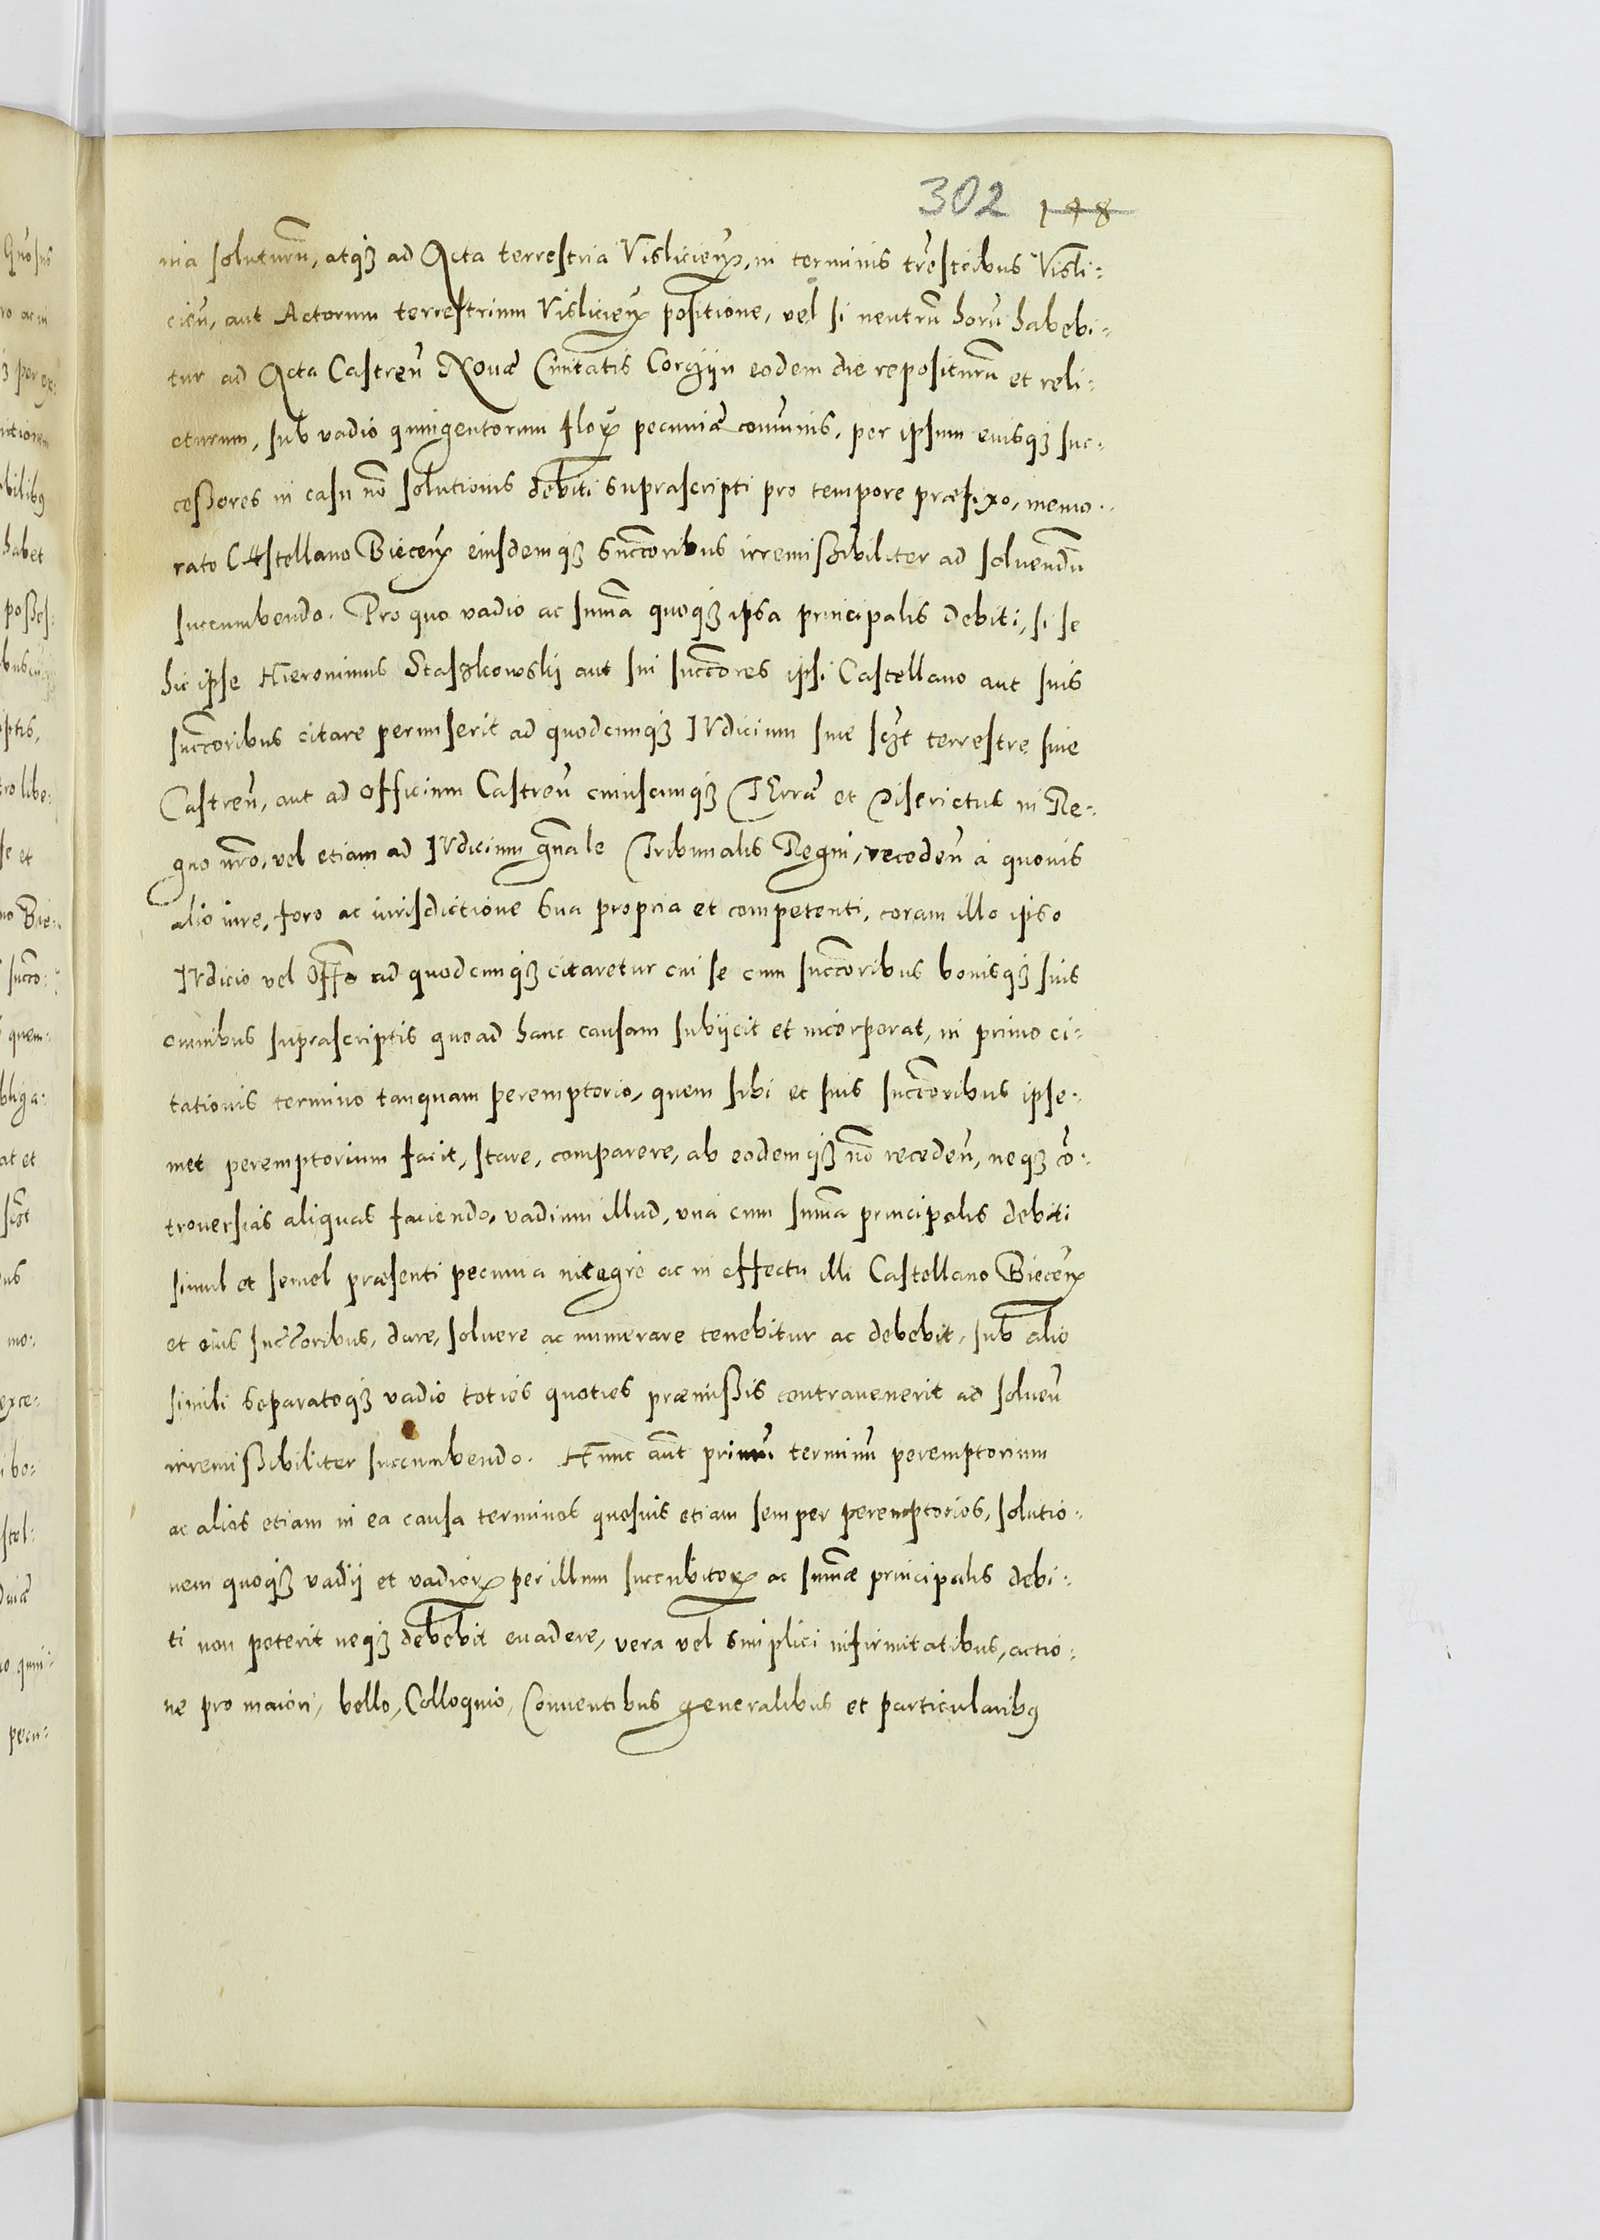 302 148
nia soluturũ, atqȝ ad Acta terrestria Visliciẽn, in terminis trẽstribus Visli-
cieñ, aut Actorum terrestrium Visliciẽn positione, vel si neutrũ horũ habebi-
tur ad Acta Castreñ Novæ Civitatis Corcziñ eodem die repositurũ et reli-
cturum, sub vadio quingentorum flor̃ pecuniæ cõmunis, per ipsum eiusqȝ suc-
cessores in casu nõ solutionis debiti suprascripti pro tempore præfixo, memo-
rato CAstellano Biecẽn eiusdemqȝ succõribus irremissibiliter ad soluendũ
succumbendo. Pro quo vadio ac sum̃a quoqȝ ipsa principalis debiti, si se
hic ipse Hieronimus Staszkowski aut sui succõres ipsi Castellano aut suis
succõribus citare permiserit ad quodcunqȝ IVdicium siue sczt terrestre siue
Castreñ, aut ad officium Castreñ cuiuscunqȝ TErræ et Districtus in Re-
gno ñro, vel etiam ad IVdicium gñale Tribunalis Regni, recedeñ à quouis
alio iure, foro ac iurisdictione sua propria et competenti, coram illo ipso
IVdicio vel Off̃o ad quodcunqȝ citaretur cui se cum succõribus bonisqȝ suis
omnibus suprascriptis quoad hanc causam subijcit et incorporat, in primo ci-
tationis termino tanquam peremptorio, quem sibi et suis succõribus ipse-
met peremptorium facit, stare, comparere, ab eodemqȝ nõ recedeñ, neqȝ cõ-
trouersias aliquas faciendo, vadium illud, vna cum sum̃a principalis debiti
simul et semel præsenti pecunia integrè ac in effectu illi Castellano Biecẽn
et eius succõribus, dare, soluere ac numerare tenebitur ac debebit, sub alio
simili separatoqȝ vadio toties quoties præmissis contravenerit ad solueñ
irremissibiliter succumbendo. Hunc aũt primũ terminũ peremptorium
ac alios etiam in ea causa terminos quosuis etiam semper peremptorios, solutio-
nem quoqȝ vadij et vadior̃ per illum succubitor̃ ac sum̃æ principalis debi-
ti non poterit neqȝ debebit euadere, vera vel simplici infirmitatibus, actio-
ne pro maiori, bello, Colloquio, Conuentibus generalibus et particularibꝰ